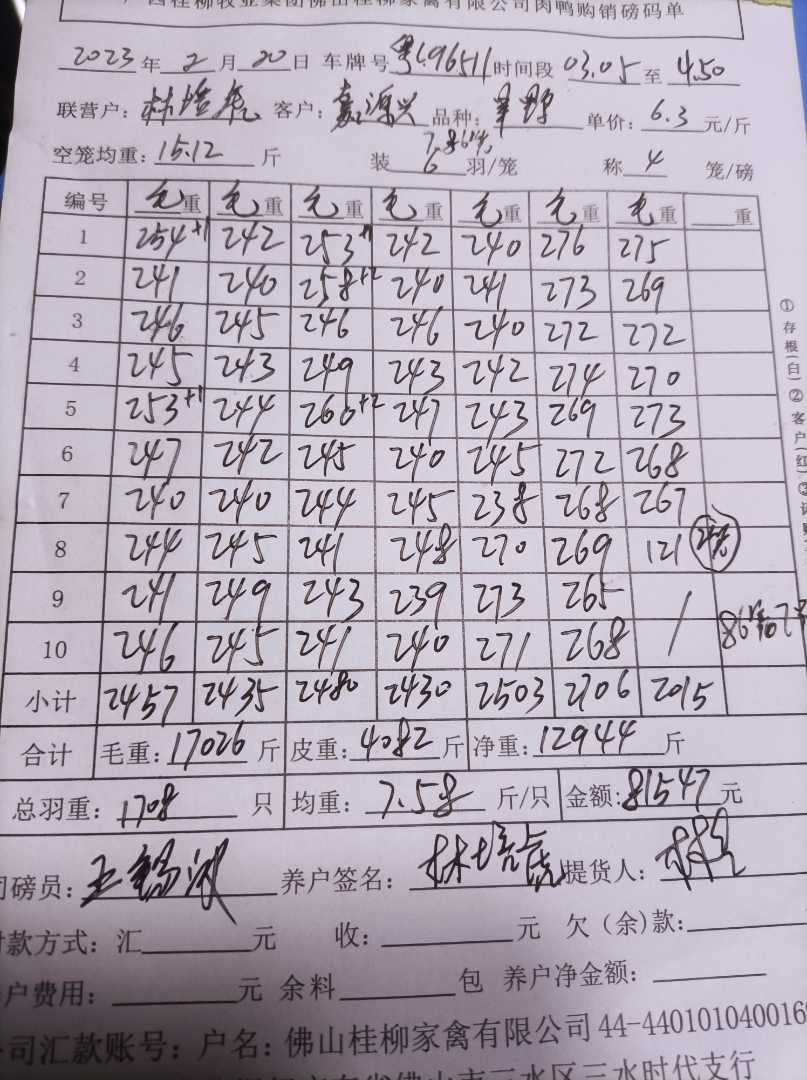 广西桂柳牧业集团佛山桂柳家禽有限公司肉鸭购销磅码单
2023年2月20日 车牌号 粤L96511 时间段 03.05 至 4.50
联营户: 林培 客户: 嘉源兴 品种: 野 单价: 6.3 元/斤
空笼均重: 15.12 斤 装 6 羽/笼 称 4 笼/磅
编号 毛重 毛重 毛重 毛重 毛重 毛重 毛重 重
1 254+1 242 253+1 242 240 276 275
2 241 240 258+2 240 241 273 269
3 246 245 246 246 240 272 272
4 245 243 249 243 242 274 270
5 253+1 244 260+2 247 243 269 273
6 247 242 245 240 245 272 268
7 240 240 244 245 238 268 267
8 244 245 241 248 270 269 121
9 241 249 243 239 273 265 /
10 246 245 241 240 271 268
小计 2457 2435 2480 2430 2503 2706 2015
合计 毛重: 17026 斤 皮重: 4082 斤 净重: 12944 斤
总羽重: 1708 只 均重: 7.58 斤/只 金额: 81547 元
司磅员: 王锡波 养户签名: 林培 提货人:
付款方式: 汇 元 收: 元 欠(余)款:
户费用: 元 余料 包 养户净金额:
司汇款账号: 户名: 佛山桂柳家禽有限公司 44-4401010400169
佛山市三水区三水时代支行
①存根(白)②客户(红)③